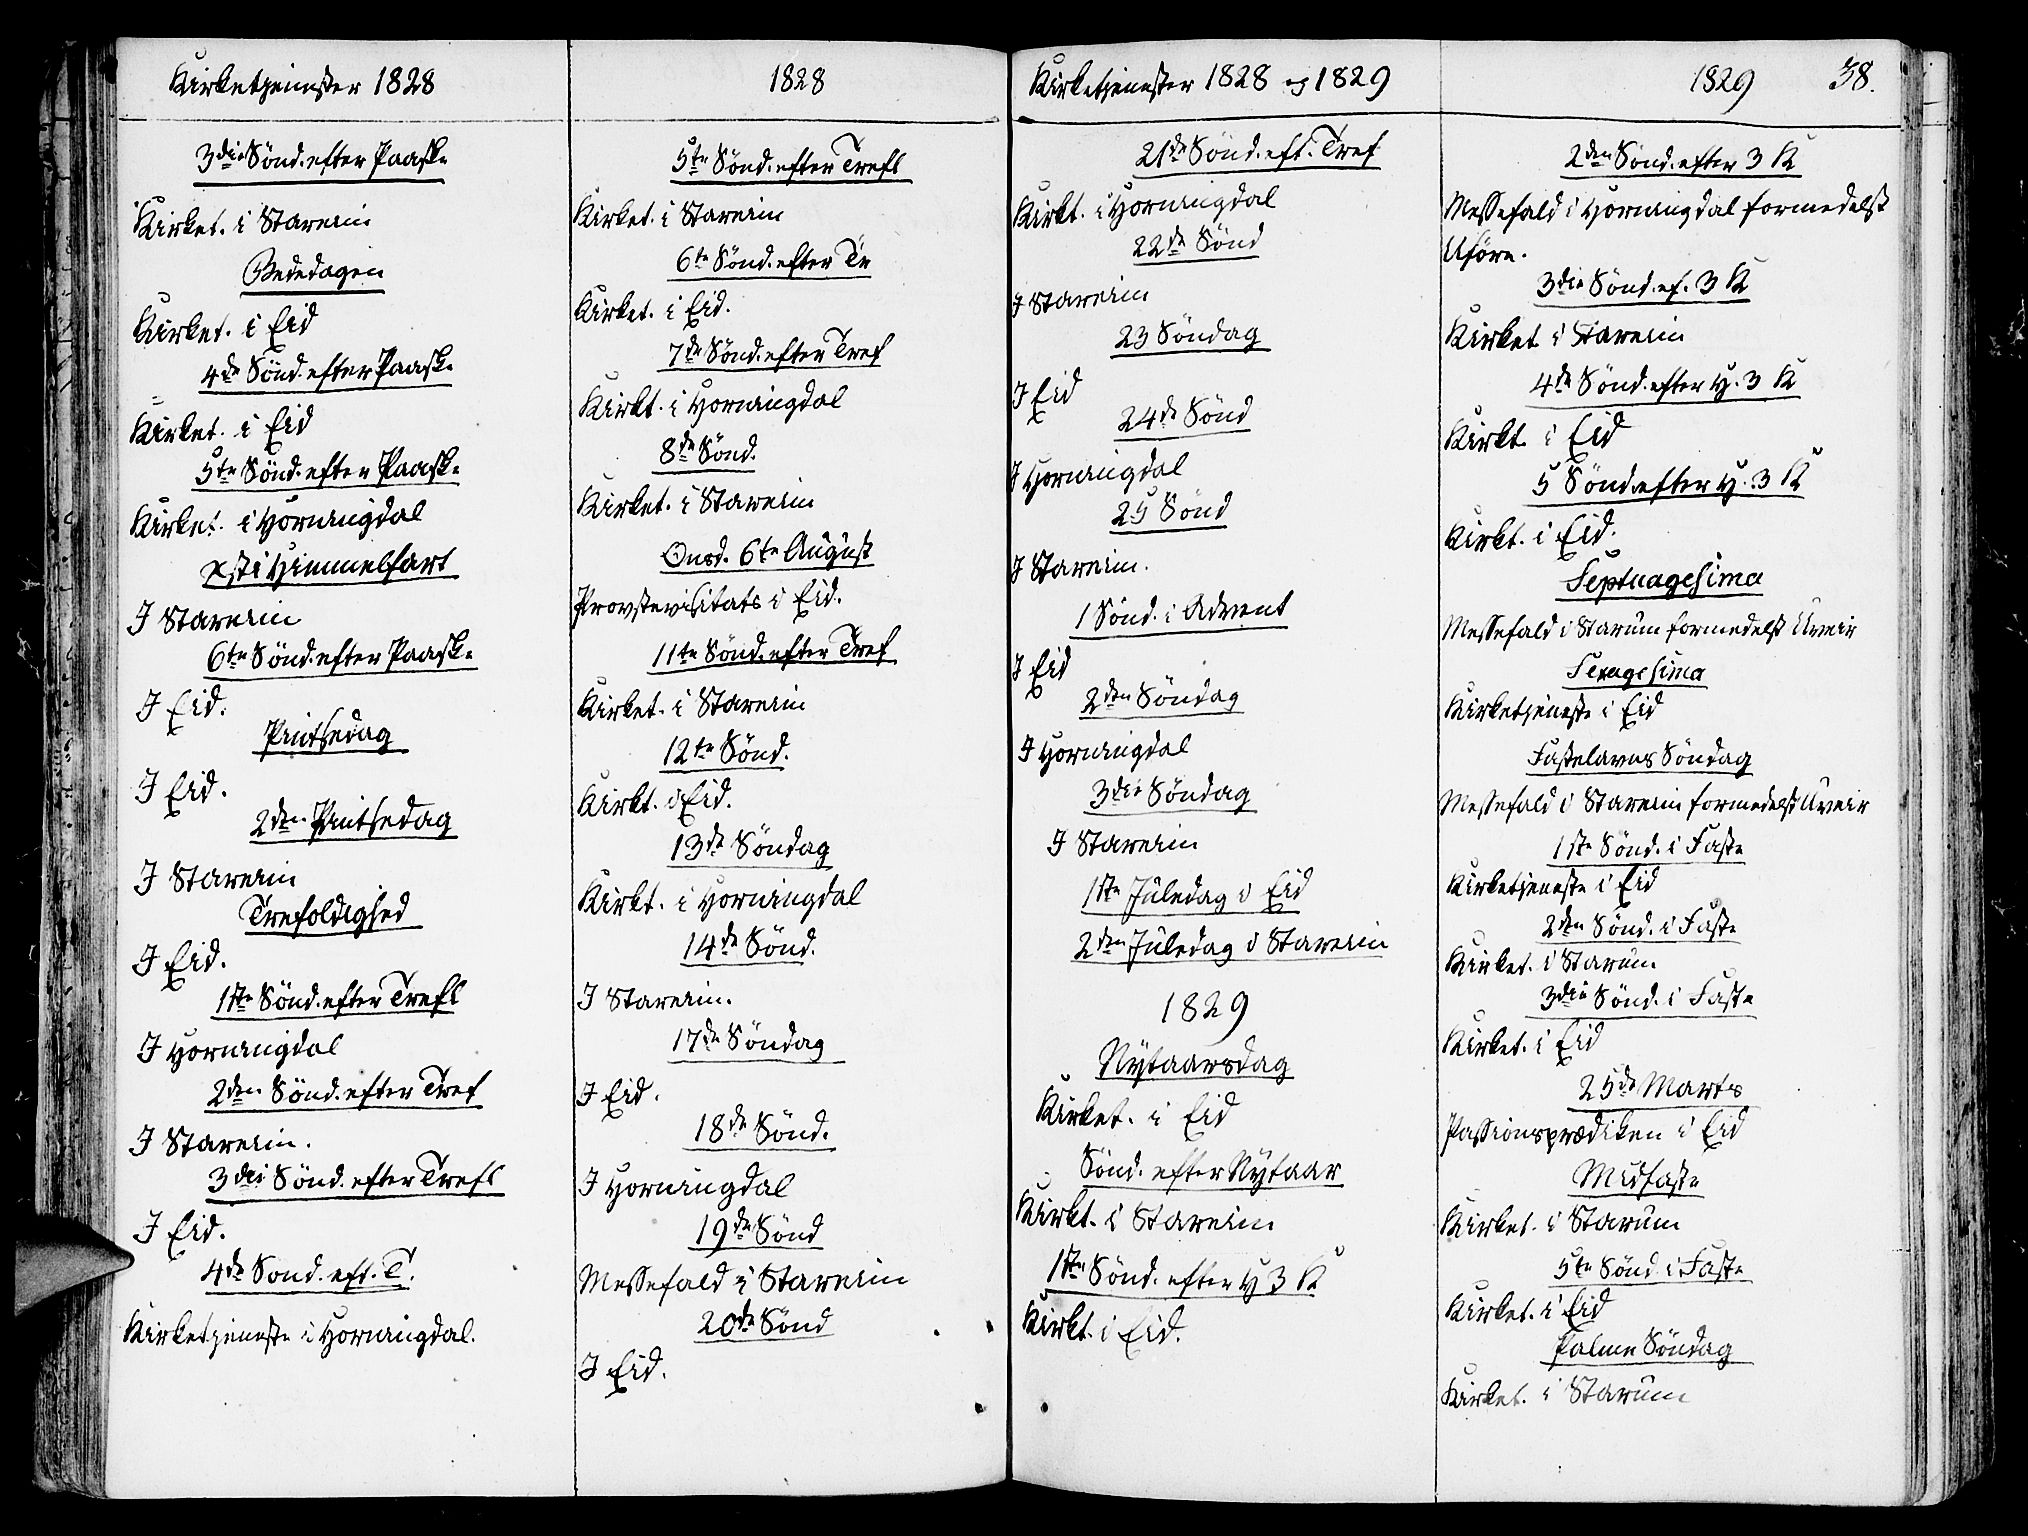 Kirketjenester 1828
3die Sönd. efter Paaske
Kirket. i Stareim
Bededagen
Kirket. i Eid
4de Sönd. efter Paaske
Kirket. i Eid
5te Sönd. efter Paaske
Kirket. i Horningdal
Xsti Himmelfart
I Stareim
6te Sönd. efter Paaske
I Eid.
Pintsedag
I Eid.
2den Pintsedag
I Stareim
Trefoldighed
I Eid.
1ste Sönd. efter Trefl
I Horningdal
2den Sönd. efter Tref
I Stareim.
3die Sönd. efter Trefl
I Eid.
4de Sond. eft. T.
Kirketjeneste i Horningdal.
1828
5te Sönd. efter Trefl
Kirket. i Stareim
6te Sönd. efter Tr
Kirket. i Eid.
7de Sönd. efter Tref
Kirkt. i Horningdal
8de Sönd.
Kirket. i Stareim
Onsd. 6te August
Provstevisitats i Eid.
11te Sönd. efter Tref
Kirket. i Stareim
12te Sönd.
Kirkt. i Eid.
13de Söndag
Kirkt. i Horningdal
14de Sönd.
I Stareim.
17de Söndag
I Eid.
18de Sönd.
I Horningdal
19de Sönd
Messefald i Stareim
20de Sönd
I Eid.
Kirketjenester 1828 og 1829
21de Sönd. eft. Tref
Kirkt. i Horningdal
22de Sönd
I Stareim
23 Söndag
I Eid
24de Sönd
I Horningdal
25 Sönd
I Stareim.
1 Sönd. i Advent
I Eid
2den Söndag
I Horningdal
3die Söndag
I Stareim
1ste Juledag i Eid
2den Juledag i Stareim
1829
Nytaarsdag
Kirket. i Eid
Sönd. efter Nytaar
Kirkt. i Stareim
1ste Sönd. efter H 3 K
Kirkt. i Eid.
1829 38.
2den Sönd. efter 3 K
Messefald i Horningdal formedelst
Uföre.
3die Sönd. ef. 3 K
Kirket i Stareim
4de Sönd. efter H. 3 K
Kirkt. i Eid
5 Sönd. efter H. 3 K
Kirkt. i Eid.
Septuagesima
Messefald i Starum formedelst Uveir
Sexagesima
Kirketjeneste i Eid
Fastelavns Söndag
Messefald i Stareim formedelst Uveir
1ste Sönd. i Faste
Kirketjeneste i Eid
2den Sönd. i Faste
Kirket. i Starum
3die Sönd. i Faste
Kirket. i Eid
25de Marts
Passionsprædiken i Eid
Midfaste
Kirket. i Starum
5te Sönd i Faste
Kirket. i Eid
Palme Söndag
Kirket. i Starum